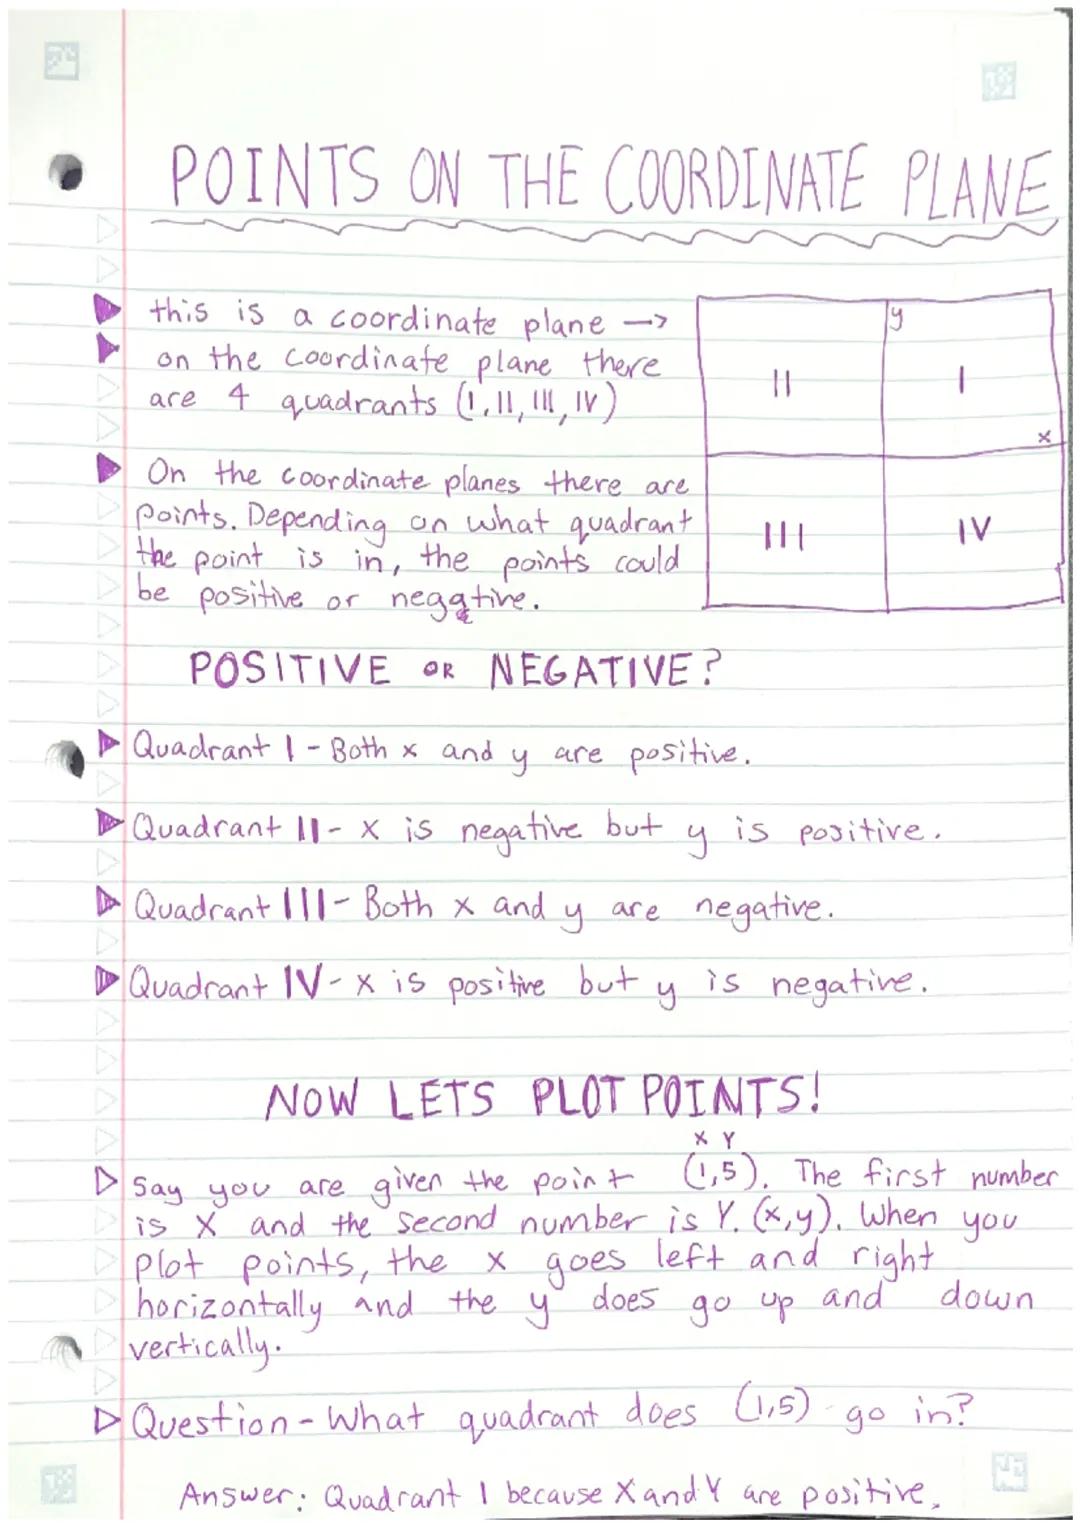 POINTS ON THE COORDINATE PLANE
this is a coordinate plane —>
on the coordinate plane there
are 4 quadrants (I, II, III, IV)
y
II
I
x
III
IV
On the coordinate planes there are
points. Depending on what quadrant
the point is in, the points could
be positive or negative.
POSITIVE OR NEGATIVE?
Quadrant I - Both x and y are positive.
Quadrant II - x is negative but y is positive.
Quadrant III - Both x and y are negative.
Quadrant IV - x is positive but y is negative.
NOW LETS PLOT POINTS!
X Y
Say you are given the point (1,5). The first number
is X and the second number is Y. (x,y). When you
plot points, the x goes left and right
horizontally and the y does go up and down
vertically.
Question - What quadrant does (1,5) go in?
Answer: Quadrant I because X and Y are positive.